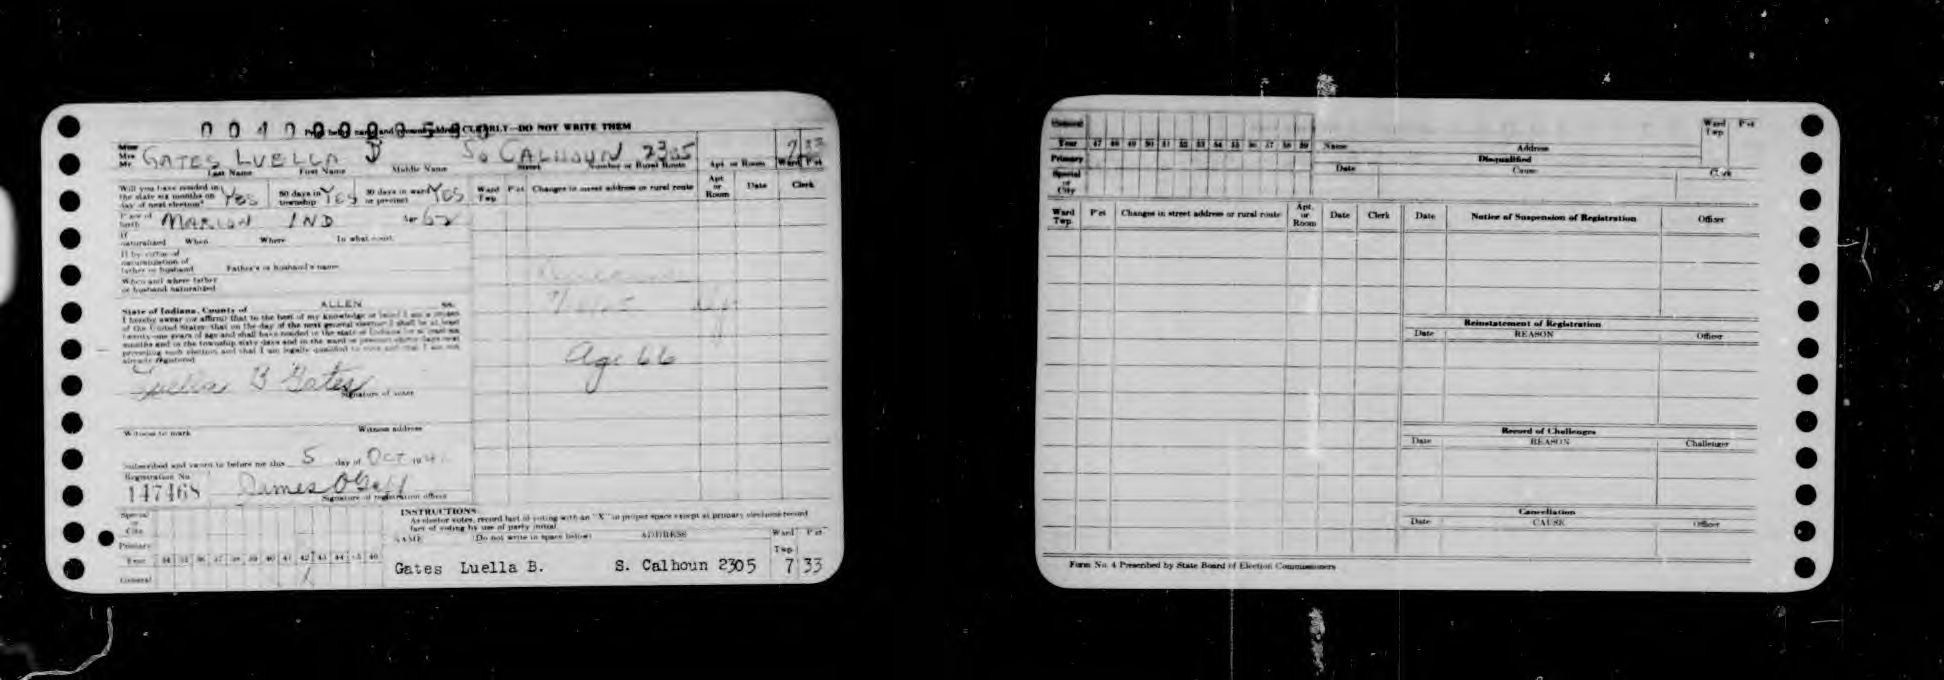 CLEARLY—DO NOT WRITE THEM
Miss
Mrs.
Mr. GATES LUELLA B So CALHOUN 2305 7 33
Last Name First Name Middle Name Street Number or Rural Route Apt. or Room Ward Pct
Will you have resided in the state six months on day of next election? Yes 60 days in township YES 30 days in ward or precinct YES
Place of birth MARION IND Age 62
If naturalized When Where In what court
If by virtue of naturalization of father or husband Father's or husband's name
When and where father or husband naturalized
ALLEN
State of Indiana, County of ss.
I hereby swear (or affirm) that to the best of my knowledge or belief I am a citizen
of the United States; that on the day of the next general election I shall be at least
twenty-one years of age and shall have resided in the state of Indiana for at least six
months and in the township sixty days and in the ward or precinct thirty days next
preceding such election and that I am legally qualified to vote and that I am not
already registered
Luella B Gates
Signature of voter
Witness to mark Witness address
Subscribed and sworn to before me this 5 day of Oct 194
Registration No.
147468 James
Signature of registration officer
Ward Twp. P'ct Changes in street address or rural route Apt. or Room Date Clerk
Age 66
Special
or
City
Primary
Year 34 35 36 37 38 39 40 41 42 43 44 45 46
General
INSTRUCTIONS
As elector votes, record fact of voting with an "X" in proper space except at primary elections record
fact of voting by use of party initial.
NAME (Do not write in space below) ADDRESS Ward Twp. P'ct
Gates Luella B. S. Calhoun 2305 7 33
General
Year 47 48 49 50 51 52 53 54 55 56 57 58 59
Primary
Special
or
City
Name Address Ward Twp. P'ct
Disqualified
Date Cause Clerk
Ward Twp. P'ct Changes in street address or rural route Apt. or Room Date Clerk
Date Notice of Suspension of Registration Officer
Reinstatement of Registration
Date REASON Officer
Record of Challenges
Date REASON Challenger
Cancellation
Date CAUSE Officer
Form No. 4 Prescribed by State Board of Election Commissioners